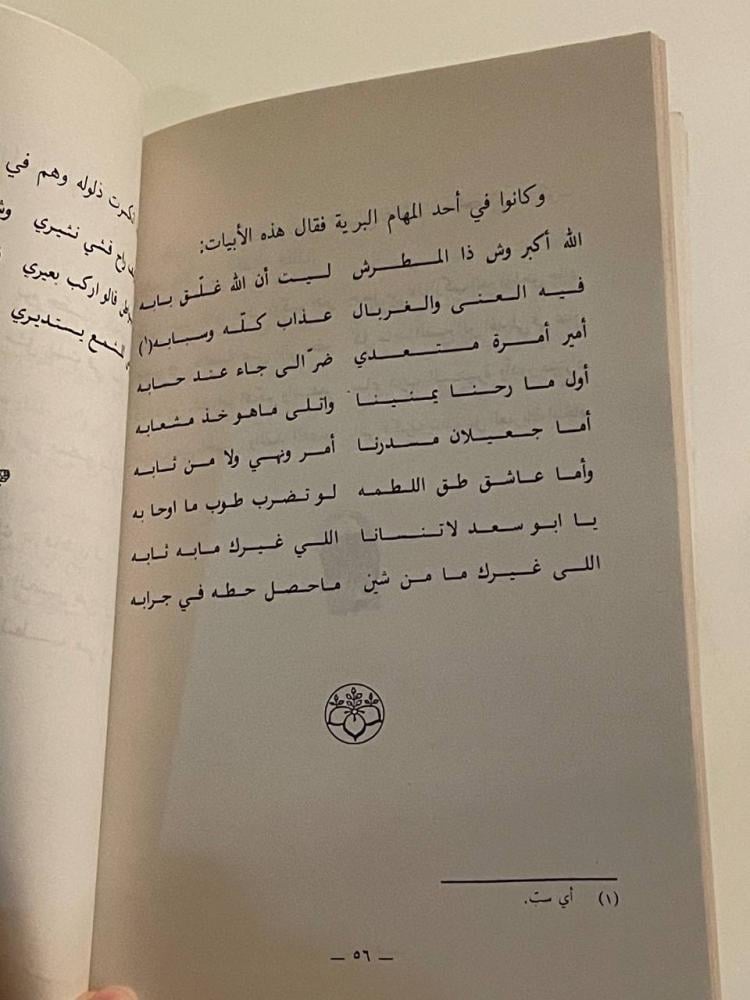 وكانوا في أحد المهام البرية فقال هذه الأبيات:
الله أكبر وش ذا المطرش ليت أن الله غلّق بابه
فيه العنى والغربال عذاب كلّه وسبابه(١)
أمير أمرة متعدي ضرّالى جاء عند حسابه
أول ما رحنا يمنينا واتلى ماهو خذ مشعابه
أما جعيلان مدرنا أمر ونهي ولا من ثابه
وأما عاشق طق اللطمه لو تضرب طوب ما اوحا به
يا ابو سعد لاتنسانا اللي غيرك مابه ثابه
اللى غيرك ما من شين ماحصل حطه في جرابه
(١) أي سبّ.
— ٥٦ —
ذلوله وهم في
فني نثيري
قالو اركب بعيري
يستديري